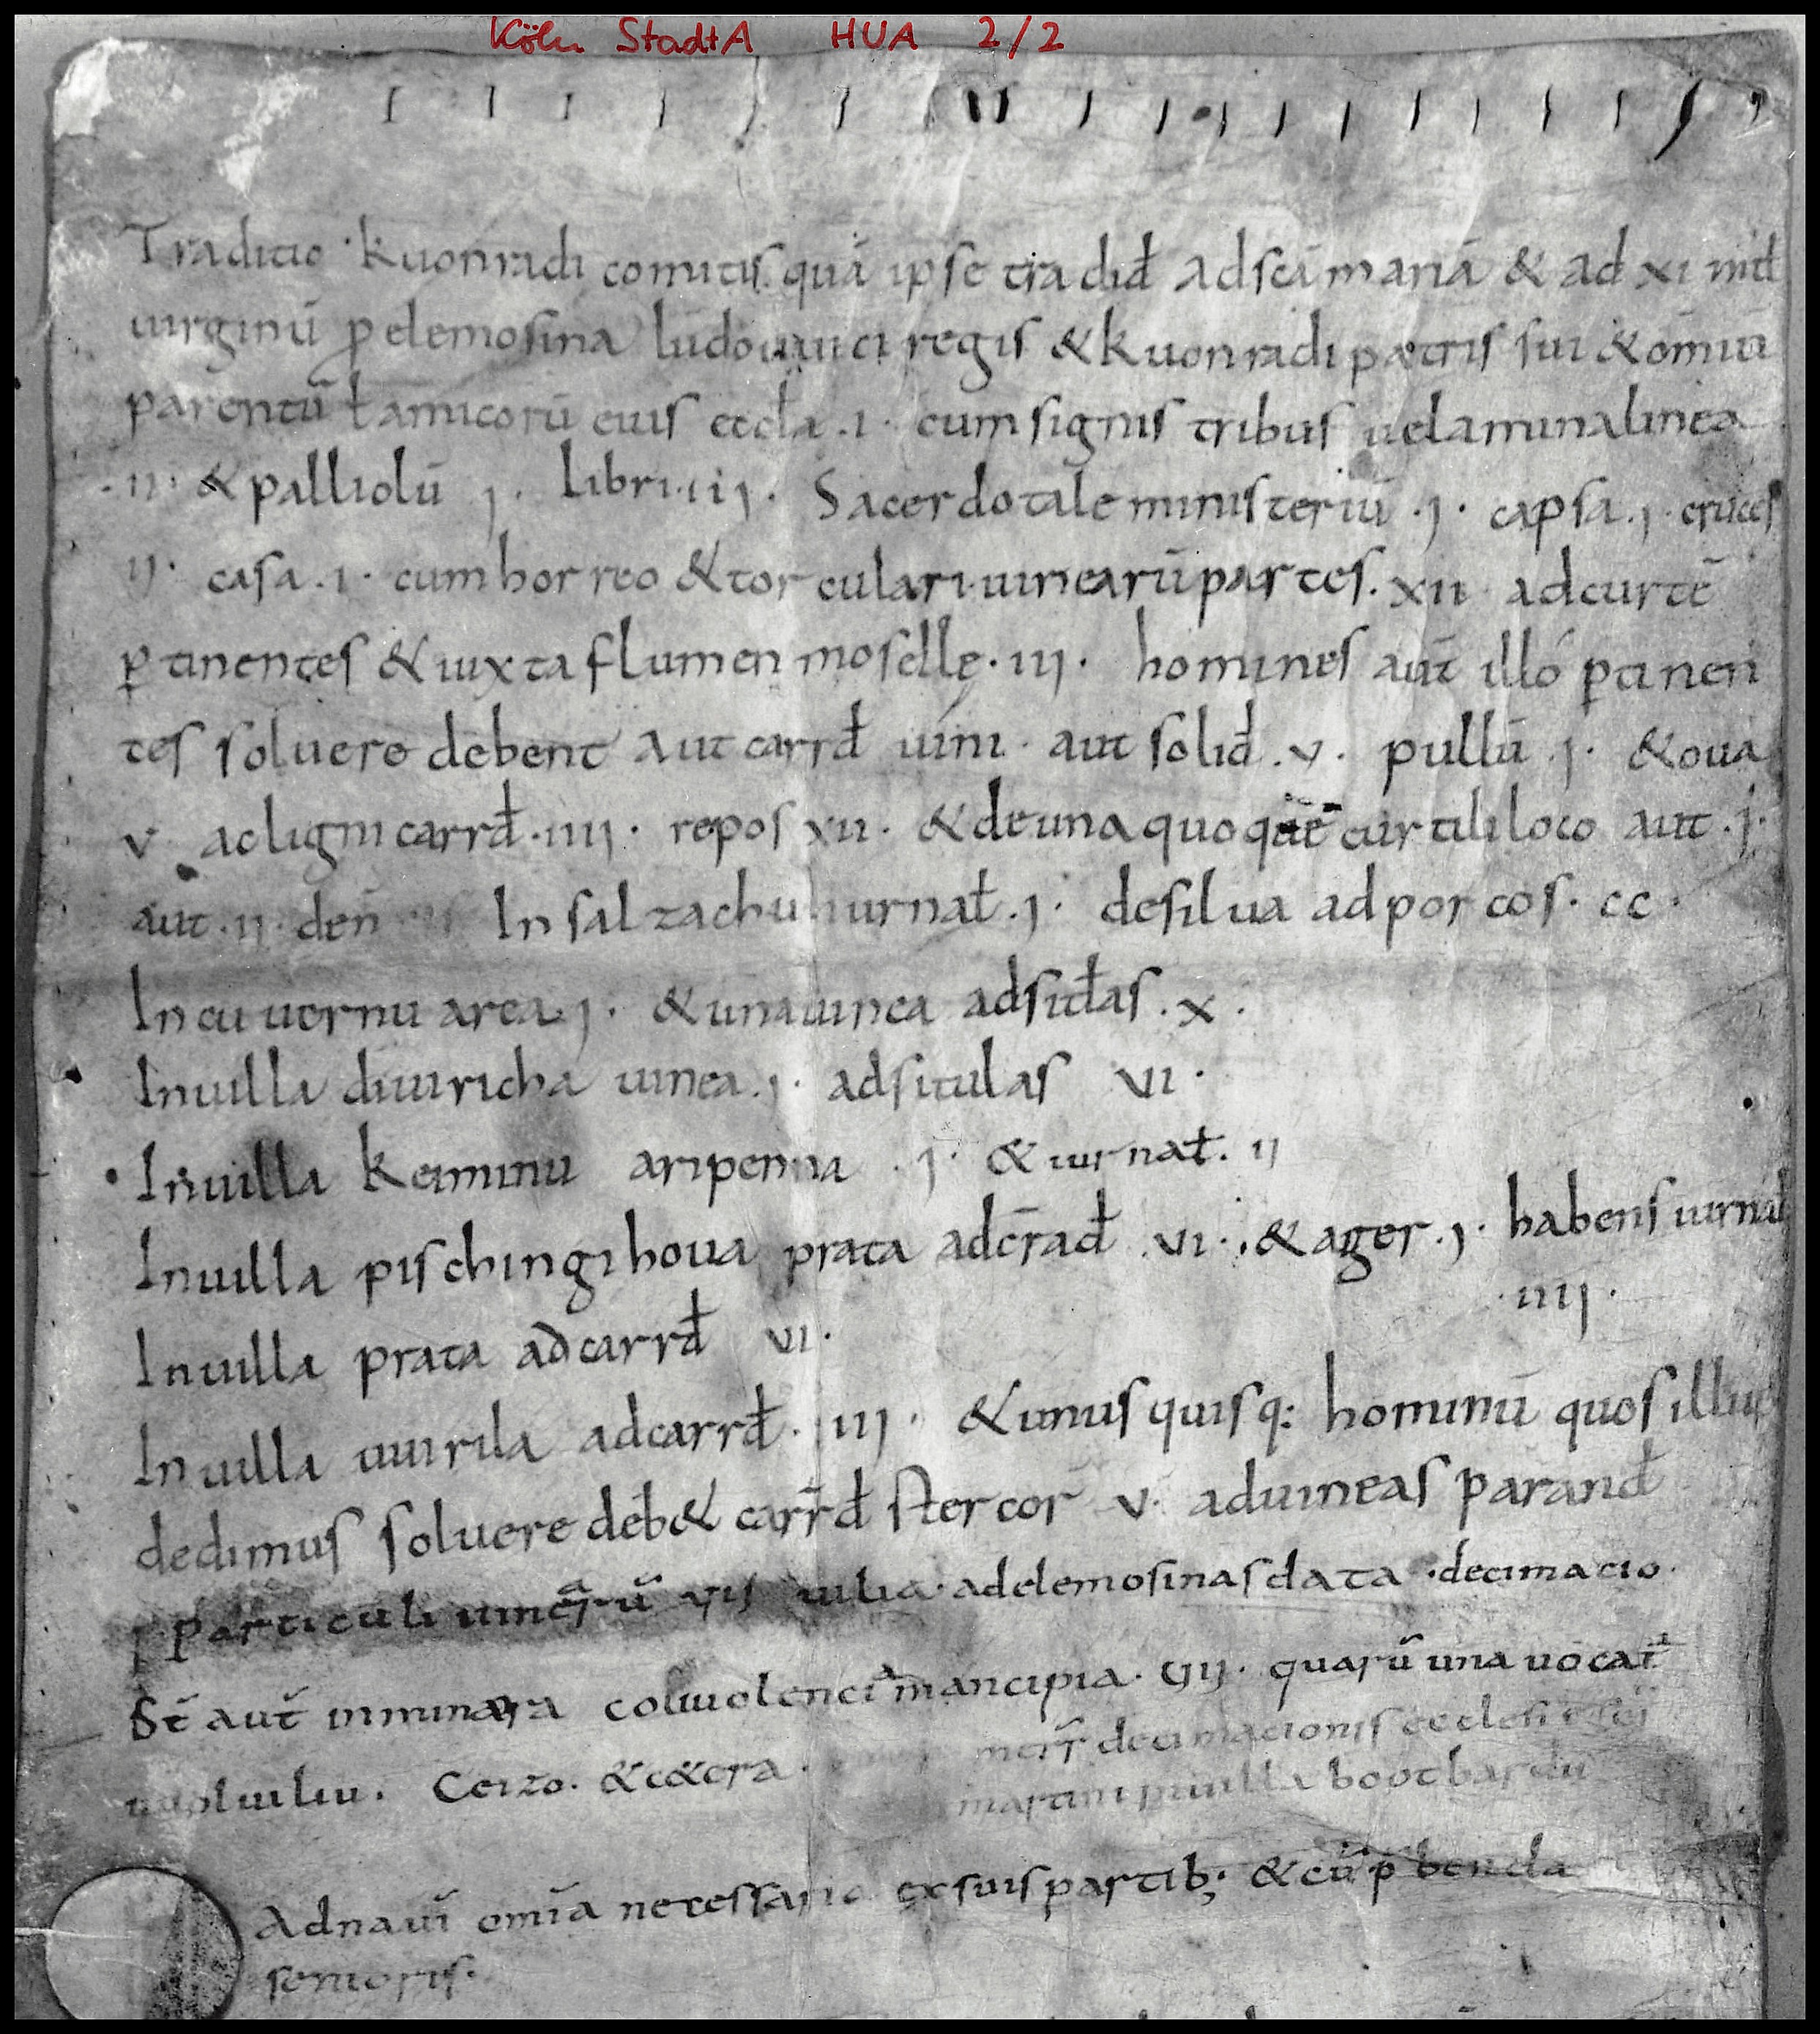 Köln StadtA HUA 2/2
Traditio kuonradi comitis. quā ipse tradid̄ ad scā mariā & ad xi mił
uirginū p elemosina ludouuici regis & kuonradi patris sui & omniū
parentū ł amicorū eius eccla .i. cum signis tribus uelamina linea
.ii. & palliolū j. libri .iij. Sacerdotale ministeriū .j. capsa .j. cruces
ij. casa .i. cum horreo & torculari. uinearū partes. xii ad curtē
ptinentes & iuxta flumen mosellę. iij. homines aut̄ illo ptinen
tes soluere debent aut carrd̄ uini. aut solid̄. v. pullū .j. & oua
v ac ligni carrd̄. iiij. repos xii. & de una quoque curtili loco aut .j.
aut .ij. den̄ In salzachu iurnał .j. de silua ad porcos. cc.
In cuuernu area .j. & una uinea ad sitłas. x.
In uilla diuuricha uinea .j. ad situlas vi.
In uilla keiminu aripenna .j. & iurnał. ij
In uilla pischingihoua prata ad c̄rad̄ .vi. & ager .j. habens iurnał
.iiij.
In uilla prata ad carrd̄ vi.
In uilla uuirila ad carrd̄. iij. & unus quisq: hominū quos illuc
dedimus soluere deb& carrd̄ stercor v. ad uineas parand̄
Particuli uinearū iulia. ad elemosinas data. decimacio.
St̄ aut̄ in munara couuolenci mancipia. vij. quarū una uocat̄
Ceizo. & c&era. decimacionis ecclesie sci
martini in uilla bootbardu
Ad naui omīa necessaria ex suis partib; & cū pbenda
senioris.